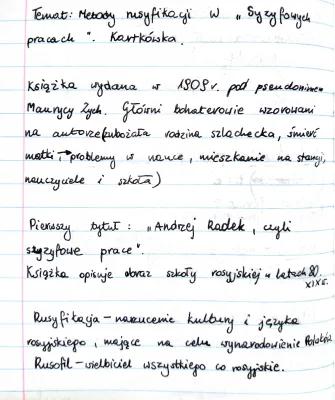 Temat: Metody rusyfikacji w „Syzyfowych
pracach". Kartkówka.
Książka wydana w 1909 r. pod pseudonimem
Maurycy Zych. Główni bohaterowie wzorowani
na autorze (zubożała rodzina szlachecka, śmierć
matki, problemy w nauce, mieszkanie na stancji,
nauczyciele i szkoła)
Pierwszy tytuł: „Andrzej Radek, czyli
syzyfowe prace".
Książka opisuje obraz szkoły rosyjskiej w latach 80.
XIX w.
Rusyfikacja – narzucenie kultury i języka
rosyjskiego, mające na celu wynarodowienie Polaków
Rusofil – wielbiciel wszystkiego co rosyjskie.